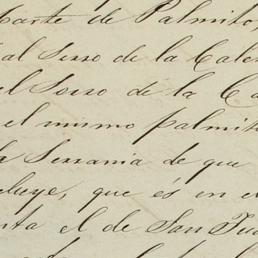 parte de Palmito,
al Serro de la Cale
el Serro de la Ca
el mismo palmito
la Serrania de que
cluye, que és en e
nta el de San Jua